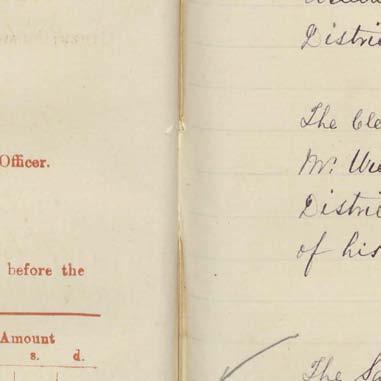 Officer.
before the
Amount
s. d.
Distri
The Cle
Mr.
Distri
of his
The